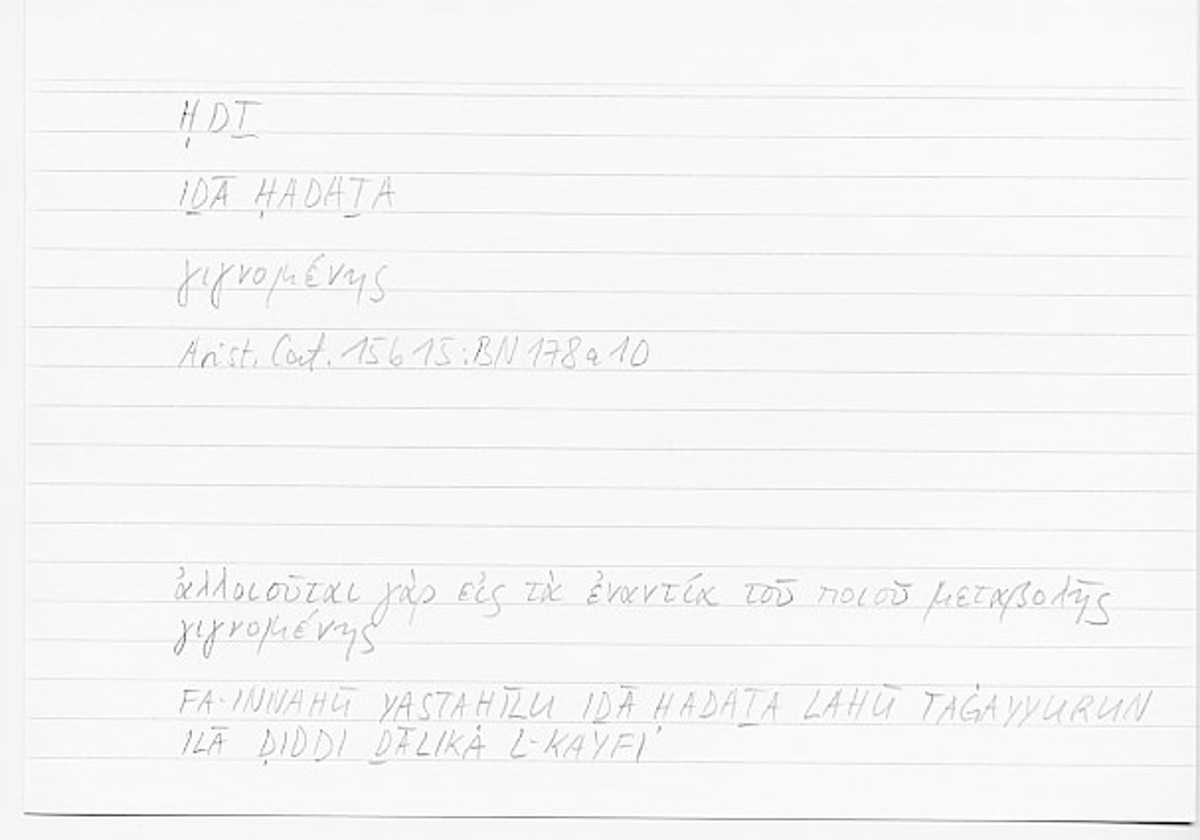 ḤDṮ
IḎĀ ḤADAṮA
γιγνομένης
Arist. Cat. 15b15: BN 178a10
ἀλλοιοῦται γὰρ εἰς τὰ ἐναντία τοῦ ποιοῦ μεταβολῆς
γιγνομένης
FA-INNAHŪ YASTAḤĪLU IḎĀ ḤADAṮA LAHŪ TAĠAYYURUN
ILĀ ḌIDDI ḎĀLIKA L-KAYFI